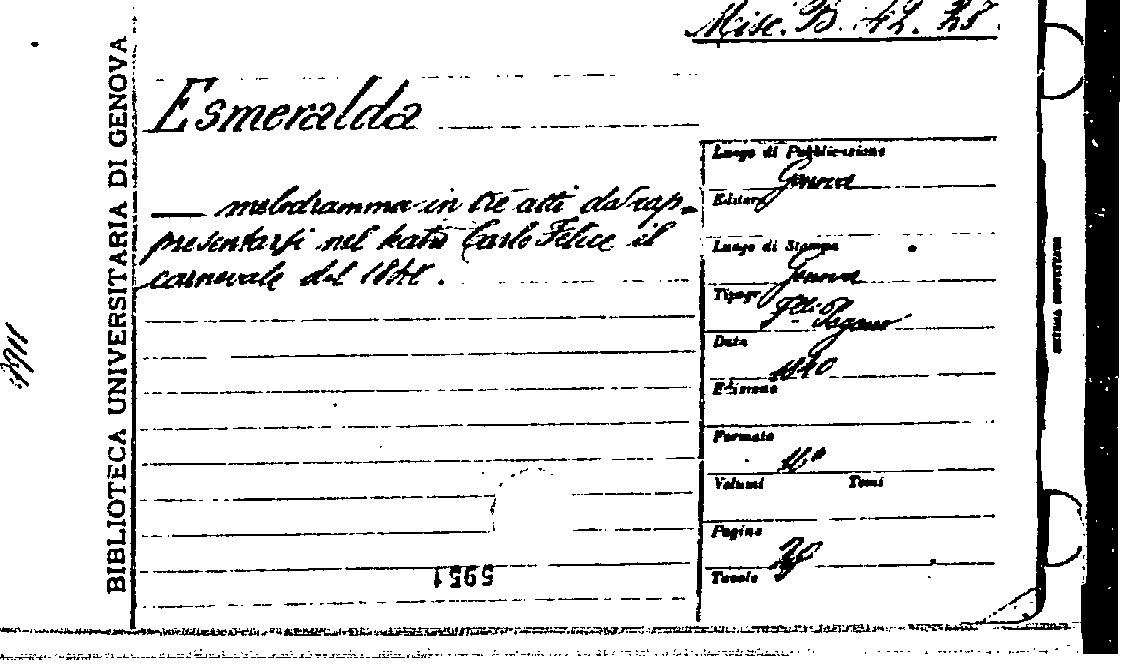 Misc. B. 42. 28.
BIBLIOTECA UNIVERSITARIA DI GENOVA
Esmeralda
melodramma in tre atti da rap-
presentarsi nel teatro Carlo Felice il
carnevale del
Luogo di Pubblicazione
Genova
Editore
Luogo di Stampa
Genova
Tipogr.
F.lli Pagano
Data
1840
Edizione
Formato
16°
Volumi Tomi
Pagine
Tavole
5951